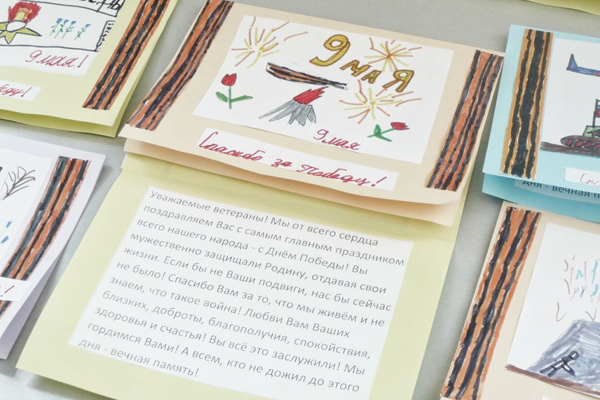 9 мая!
9 мая
9 мая
Спасибо за Победу!
Уважаемые ветераны! Мы от всего сердца
поздравляем Вас с самым главным праздником
всего нашего народа - с Днём Победы! Вы
мужественно защищали Родину, отдавая свои
жизни. Если бы не Ваши подвиги, нас бы сейчас
не было! Спасибо Вам за то, что мы живём и не
знаем, что такое война! Любви Вам Ваших
близких, доброты, благополучия, спокойствия,
здоровья и счастья! Вы всё это заслужили! Мы
гордимся Вами! А всем, кто не дожил до этого
дня - вечная память!
дня - вечная